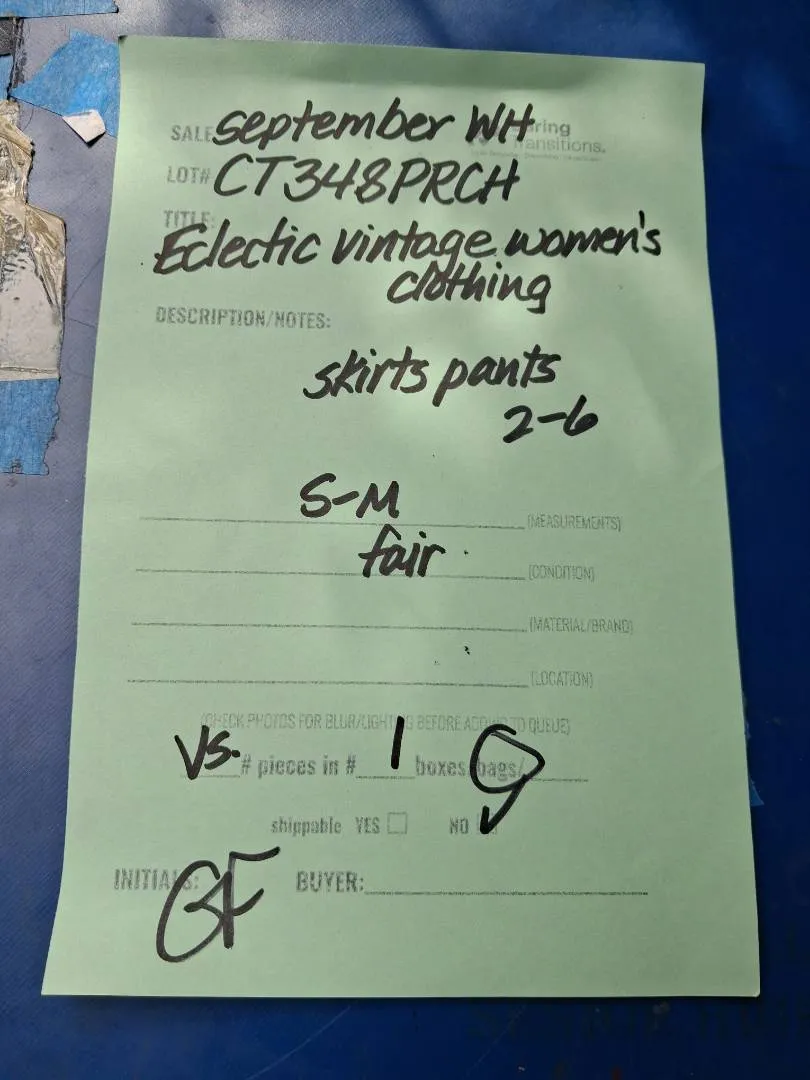 SALE september WH
ring
ansitions.
LOT# CT348PRCH
TITLE:
Eclectic vintage women's
clothing
DESCRIPTION/NOTES:
skirts pants
2-6
S-M (MEASUREMENTS)
fair (CONDITION)
(MATERIAL/BRAND)
(LOCATION)
(CHECK PHOTOS FOR BLUR/LIGHTING BEFORE ADDING TO QUEUE)
VS. # pieces in # 1 boxes/bags/
shippable YES NO
INITIALS: GF BUYER: